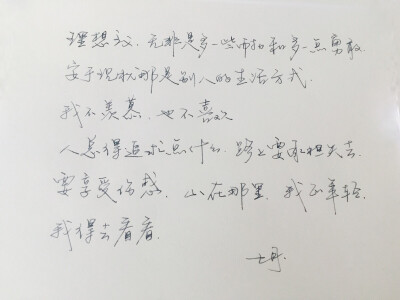 理想主义，无非是多一些布扣和多一点勇敢.
安于现状那是别人的生活方式.
我不羡慕，也不喜欢
人总得追求点什么.路上要承担失去.
要享受伤感. 山在那里，我正年轻.
我得去看看.